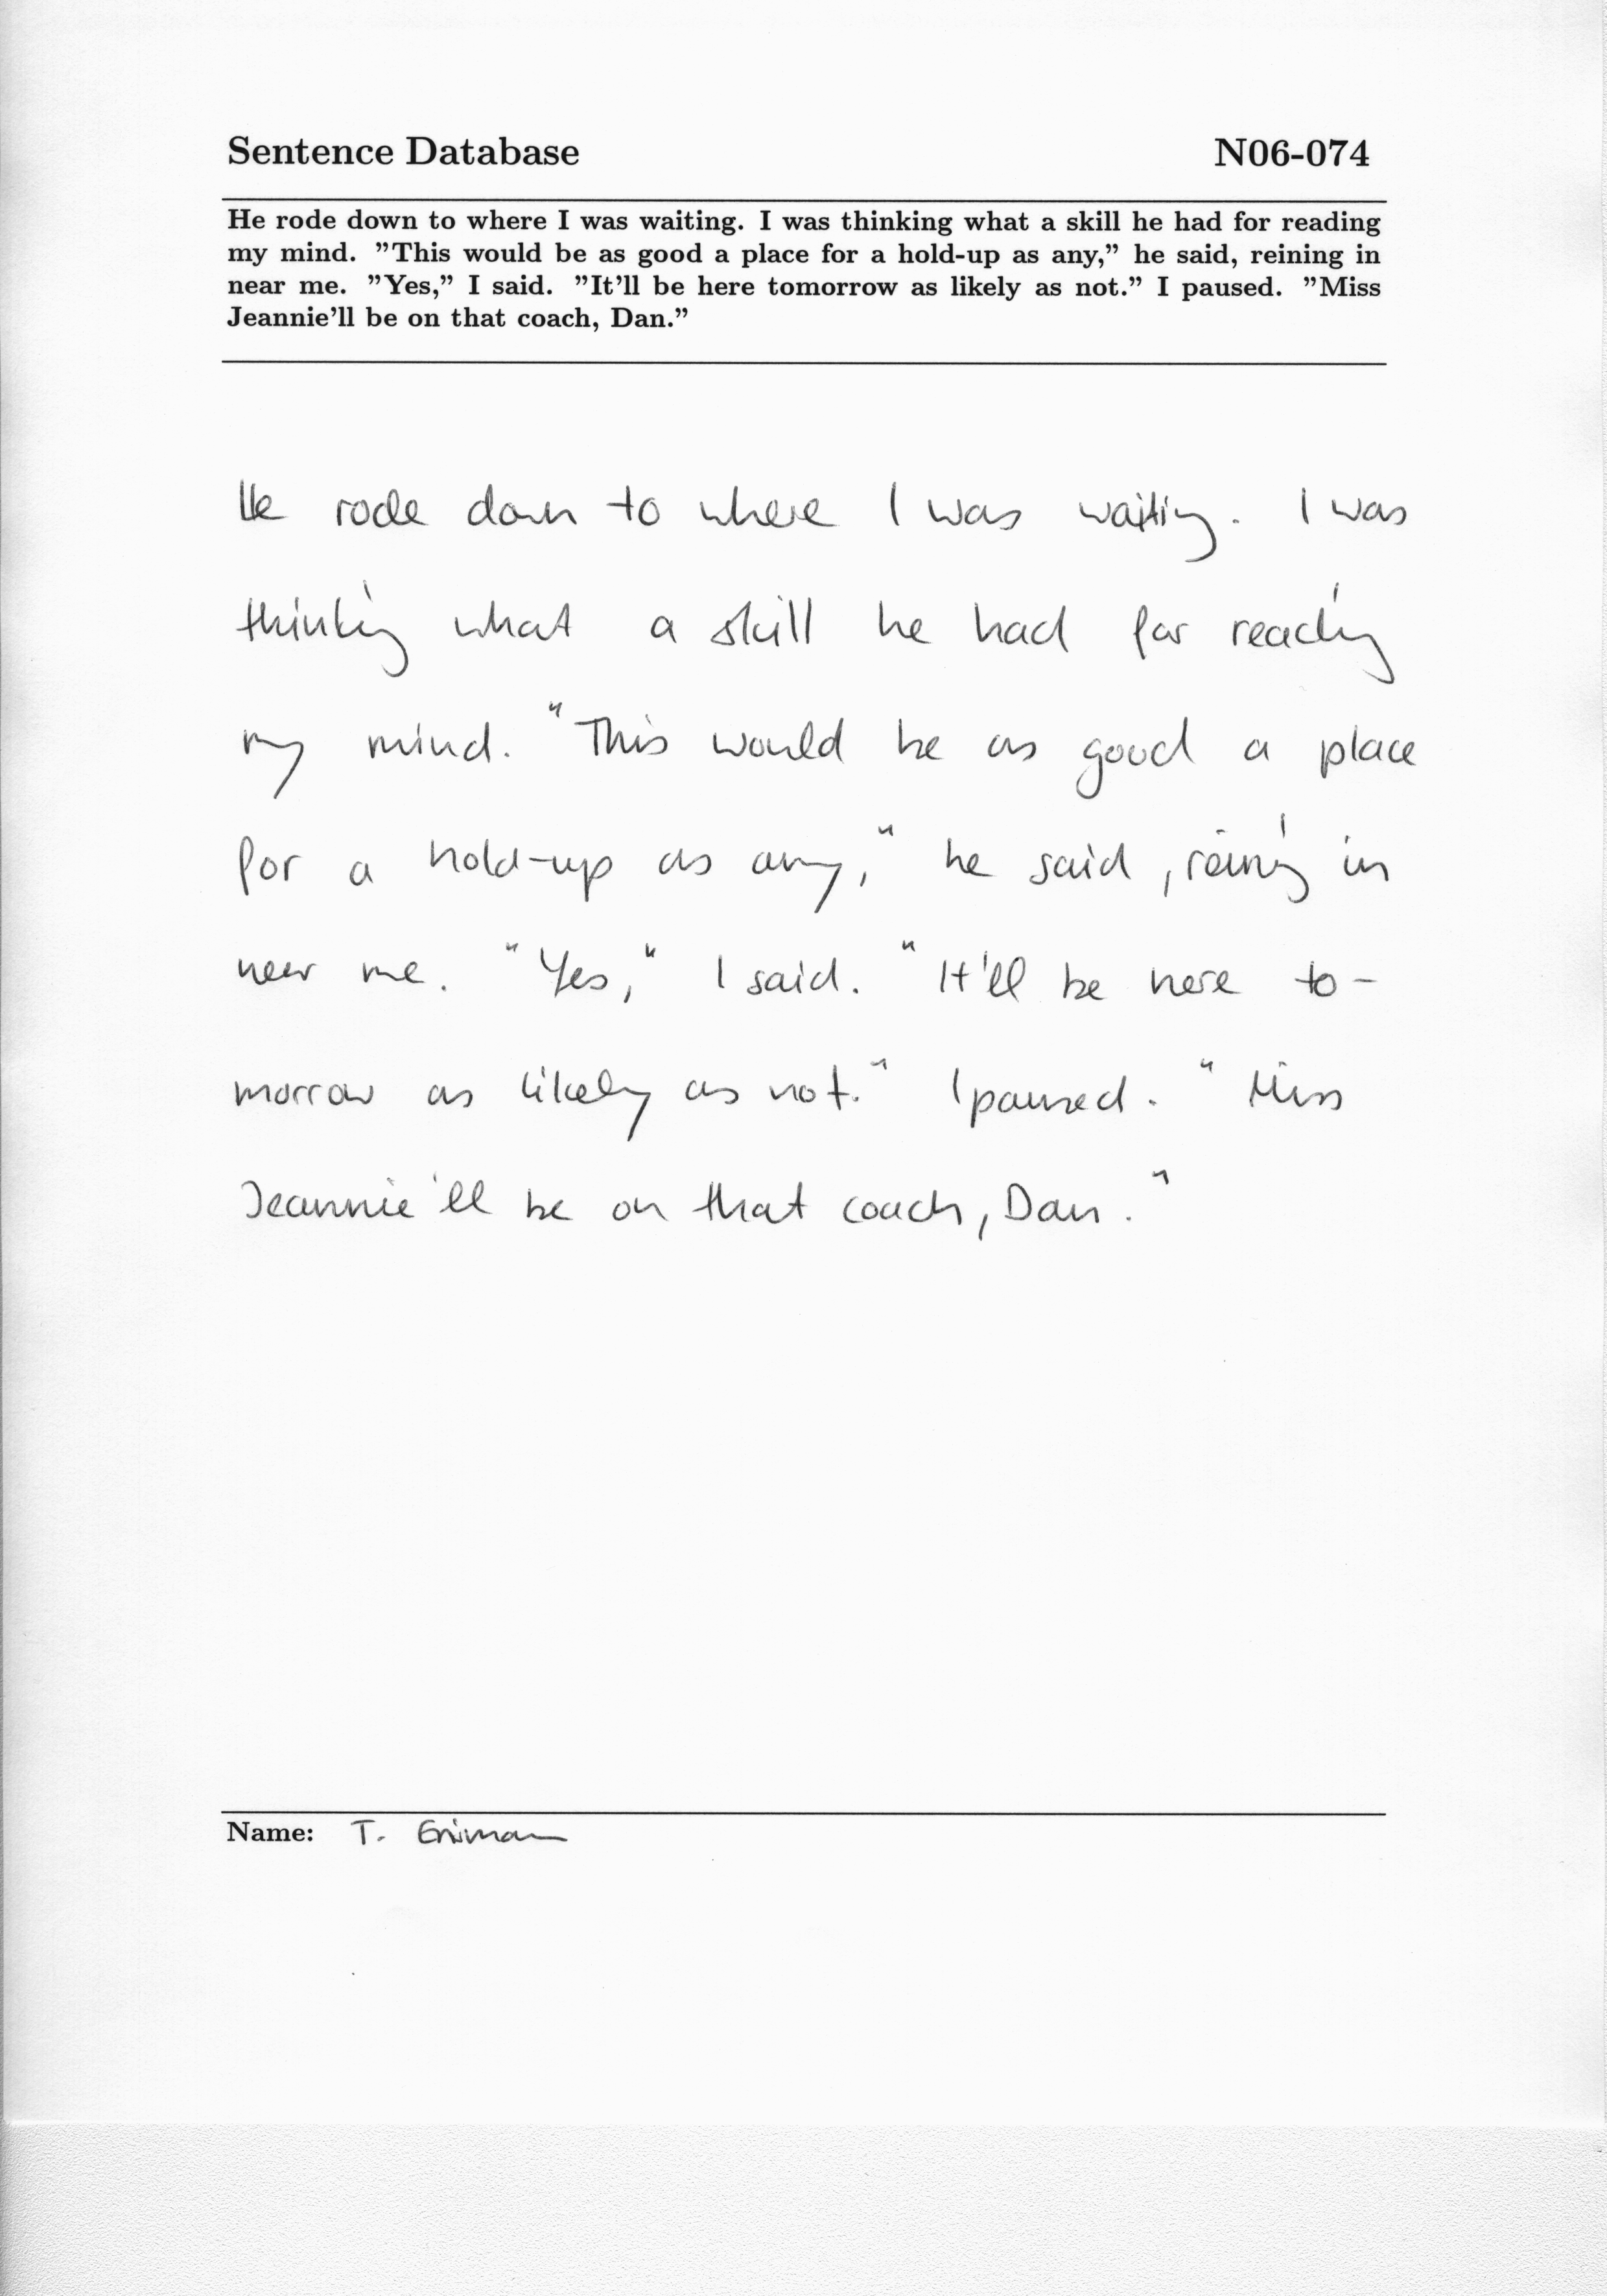 Sentence Database N06-074
He rode down to where I was waiting. I was thinking what a skill he had for reading
my mind. ”This would be as good a place for a hold-up as any,” he said, reining in
near me. ”Yes,” I said. ”It’ll be here tomorrow as likely as not.” I paused. ”Miss
Jeannie’ll be on that coach, Dan.”
He rode down to where I was waiting. I was
thinking what a skill he had for reading
my mind. "This would be as good a place
for a hold-up as any," he said, reining in
near me. "Yes," I said. "It'll be here to-
morrow as likely as not." I paused. "Miss
Jeannie'll be on that coach, Dan."
Name: T.